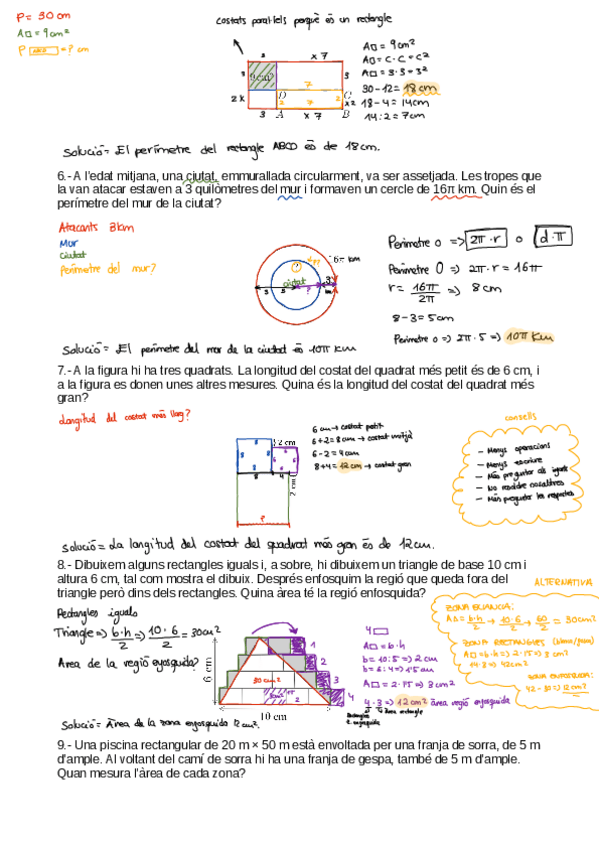 P = 30 cm
A□ = 9 cm²
P ABCD = ? cm
Costats paral·lels perquè és un rectangle
3 x 7
3 9 cm² 3
D 7 C
2 x 2 7 2 x2
3 A x 7 B
A□ = 9cm²
A□ = c · c = c²
A□ = 3 · 3 = 3²
30 - 12 = 18 cm
18 - 4 = 14cm
14 : 2 = 7cm
Solució = El perímetre del rectangle ABCD és de 18 cm.
6.- A l'edat mitjana, una ciutat, emmurallada circularment, va ser assetjada. Les tropes que
la van atacar estaven a 3 quilòmetres del mur i formaven un cercle de 16π km. Quin és el
perímetre del mur de la ciutat?
Atacants 3km
Mur
ciutat
Perímetre del mur?
16π km
ciutat
Perímetre o => 2π · r o d · π
Perímetre O => 2π · r = 16π
r = 16π / 2π => 8 cm
8 - 3 = 5cm
Perímetre o => 2π · 5 => 10π Km
Solució = El perímetre del mur de la ciudad és 10π Km
7.- A la figura hi ha tres quadrats. La longitud del costat del quadrat més petit és de 6 cm, i
a la figura es donen unes altres mesures. Quina és la longitud del costat del quadrat més
gran?
Longitud del costat més llarg?
2 cm
2 cm
?
6 cm → costat petit
6 + 2 = 8 cm → costat mitjà
6 - 2 = 4cm
8 + 4 = 12 cm → costat gran
consells
- Menys operacions
- Menys escriure
- Més preguntar als iguals
- No residre nosaltres
- Més preguntar les respostes
Solució = La longitud del costat del quadrat més gran és de 12 cm.
8.- Dibuixem alguns rectangles iguals i, a sobre, hi dibuixem un triangle de base 10 cm i
altura 6 cm, tal com mostra el dibuix. Després enfosquim la regió que queda fora del
triangle però dins dels rectangles. Quina àrea té la regió enfosquida?
ALTERNATIVA
Rectangles iguals
Triangle => b·h / 2 => 10 · 6 / 2 = 30cm²
Àrea de la regió enfosquida?
6 cm
30 cm²
1
2
3
4
10 cm
4 □
A□ = b · h
b = 10 : 5 => 2 cm
h = 6 : 4 => 1'5 cm
A□ = 2 · 1'5 => 3 cm²
4 · 3 => 12 cm² àrea regió enfosquida
ZONA BLANCA:
A△ = b·h / 2 → 10·6 / 2 → 60 / 2 = 30cm²
ZONA RECTANGLES
A□ = b·h => 2·1'5 => 3 cm²
14·3 => 42 cm²
ZONA ENFOSQUIDA:
42 - 30 => 12 cm²
Solució = Àrea de la zona enfosquida 12 cm².
9.- Una piscina rectangular de 20 m × 50 m està envoltada per una franja de sorra, de 5 m
d'ample. Al voltant del camí de sorra hi ha una franja de gespa, també de 5 m d'ample.
Quan mesura l'àrea de cada zona?